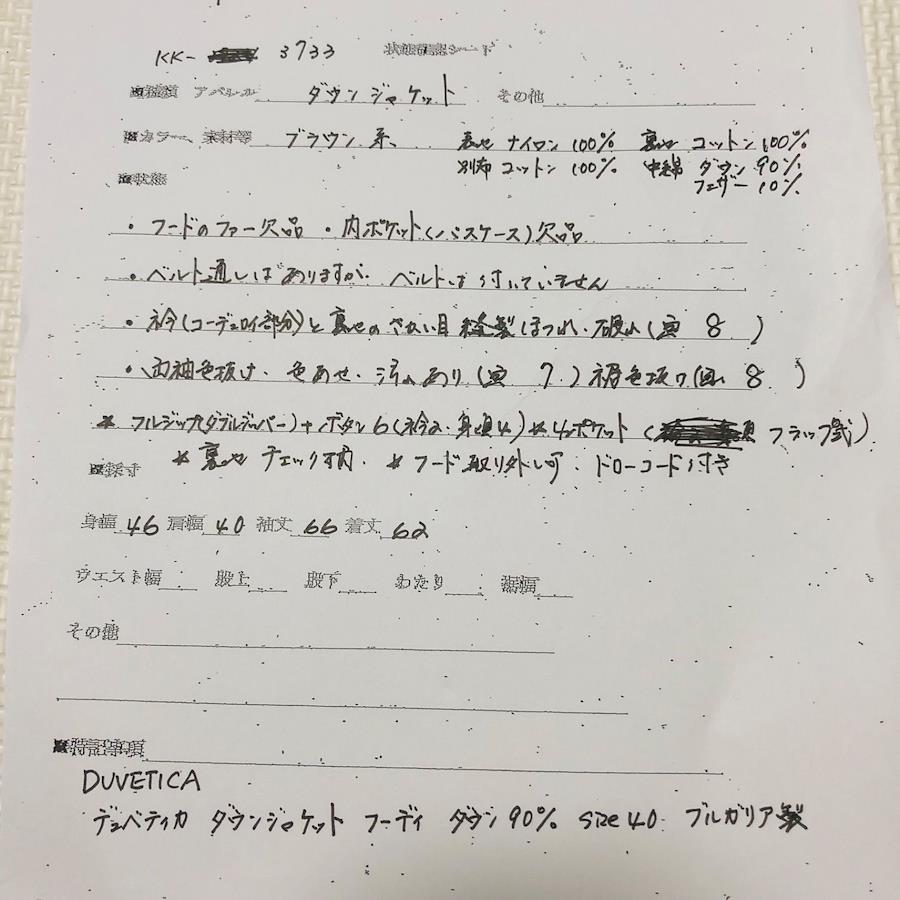 KK- 3733 状態確認シート
■種類 アパレル ダウンジャケット その他
■カラー、素材等 ブラウン系 表地 ナイロン 100% 裏地 コットン 100%
別布 コットン 100% 中綿 ダウン 90%
フェザー 10%
■状態
・フードのファー欠品 ・内ポケット(パスケース)欠品
・ベルト通しはありますが ベルトは付いていません
・衿(コーデュロイ部分)と裏地のさかい目 縫製ほつれ・破れ(画 8 )
・両袖色抜け・色あせ・汚れあり(画 7 ) 裾色抜け(画 8 )
* フルジップ(ダブルジッパー)+ボタン6(衿2・身頃4) * 4ポケット( フラップ式)
* 裏地 チェック柄 * フード取り外し可・ドローコード付き
■採寸
身幅 46 肩幅 40 袖丈 66 着丈 62
ウエスト幅 股上 股下 わたり 裾幅
その他
■特記事項
DUVETICA
デュベティカ ダウンジャケット フーディ ダウン90% size 40 ブルガリア製